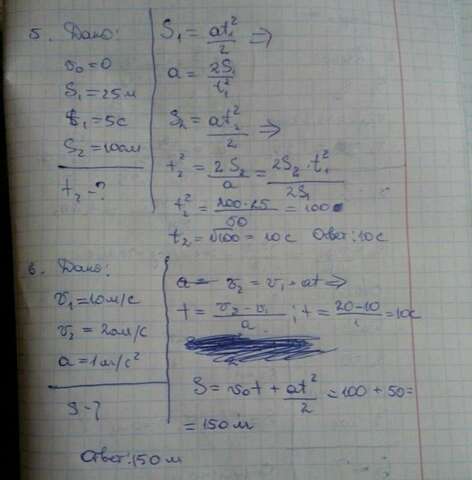 5. Дано:
v₀=0
S₁=25м
t₁=5с
S₂=100м
t₂-?
S₁ = at₁²/2 ⇒
a = 2S₁/t₁²
S₂ = at₂²/2 ⇒
t₂² = 2S₂/a = 2S₂·t₁²/2S₁
t₂² = 200·25/50 = 100
t₂ = √100 = 10с Ответ: 10с
6. Дано:
v₁=10м/с
v₂=20м/с
a=1м/с²
S-?
a= v₂=v₁+at ⇒
t = v₂-v₁/a; t = 20-10/1 = 10с
S = v₀t + at²/2 = 100+50=
= 150м
Ответ: 150м